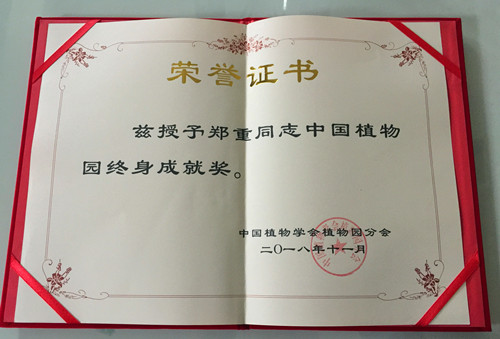 荣誉证书
兹授予郑重同志中国植物
园终身成就奖。
中国植物学会植物园分会
二〇一八年十一月